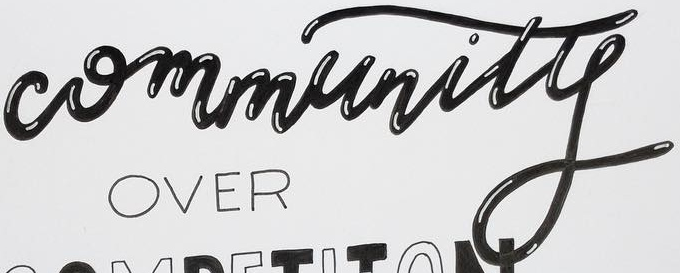 community
OVER
COMPETITON